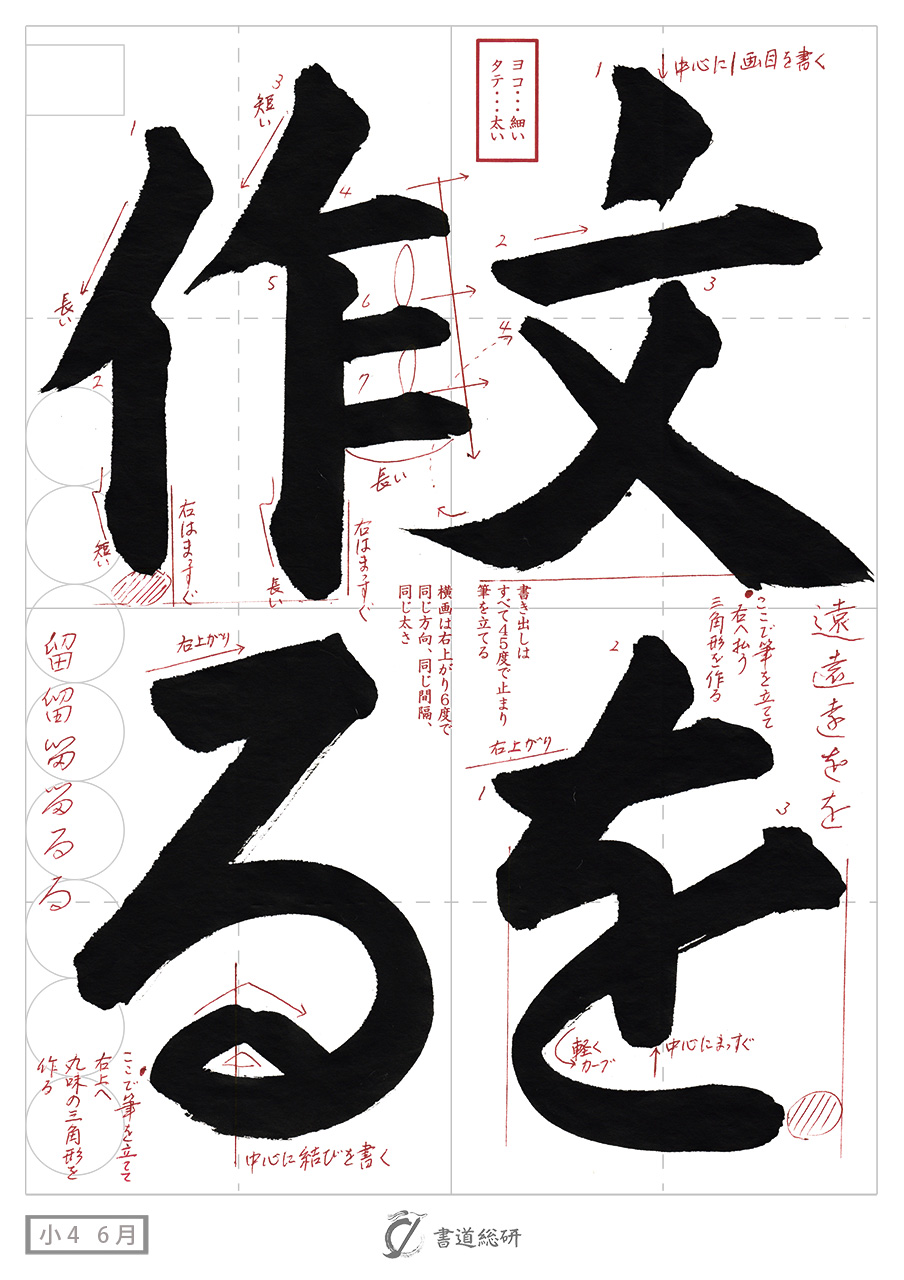 文を
作る
ヨコ・・・細い
タテ・・・太い
1
中心に1画目を書く
2
3
4
書き出しは
すべて45度で止まり
筆を立てる
横画は右上がり6度で
同じ方向、同じ間隔、
同じ太さ
ここで筆を立てて
右へ払う
三角形を作る
遠遠遠をを
2
右上がり
1
3
軽く
カーブ
中心にまっすぐ
1
長い
2
短い
右はまっすぐ
3
短い
4
5
6
7
長い
長い
右はまっすぐ
右上がり
留留留留るる
中心に結びを書く
ここで筆を立てて
右上へ
丸味の三角形を
作る
小4 6月
書道総研